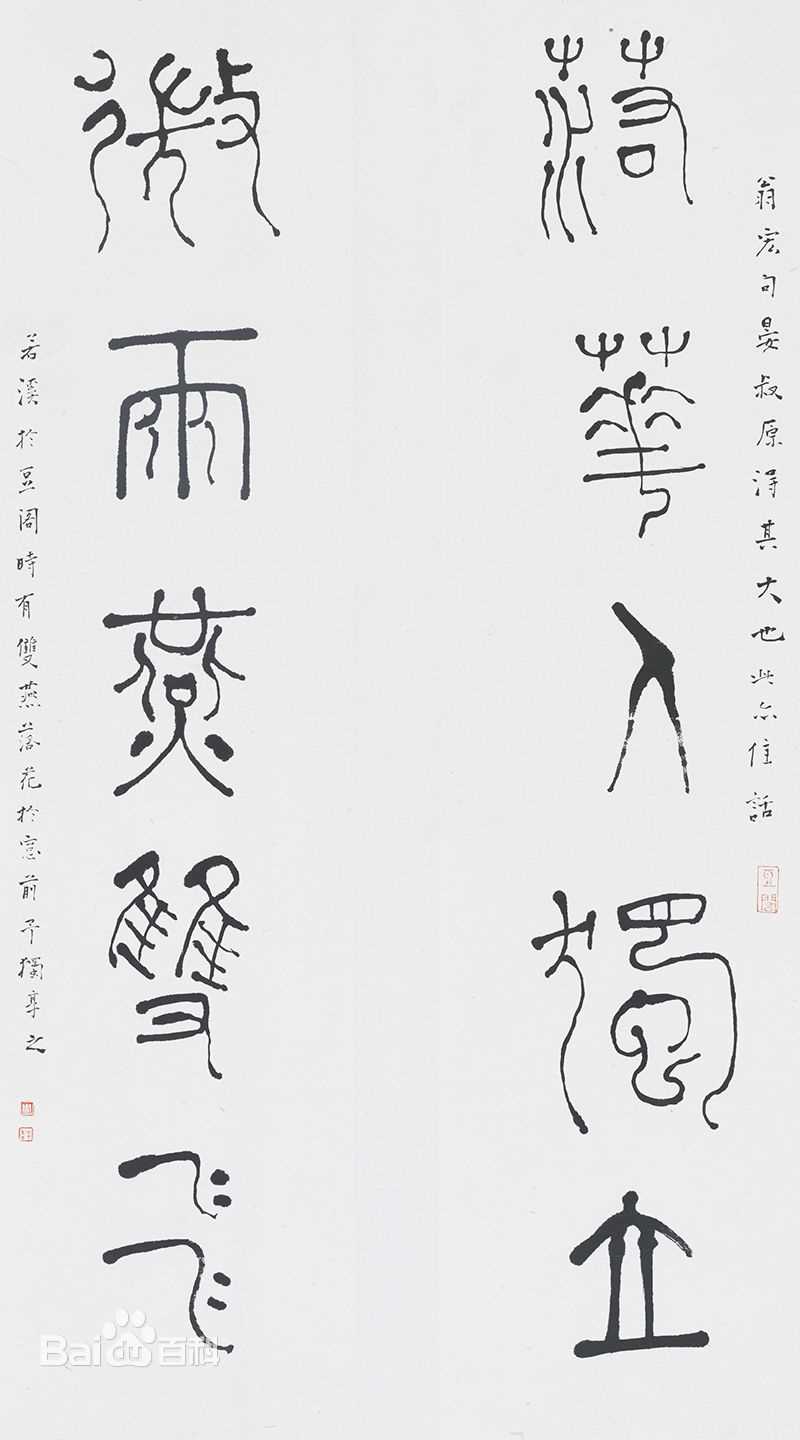 翁宏句晏叔原得其大也此亦佳話
落華人獨立
微雨燕雙飛
若溪於豆閣時有雙燕落花於窗前予獨享之
豆閣
Bai百科